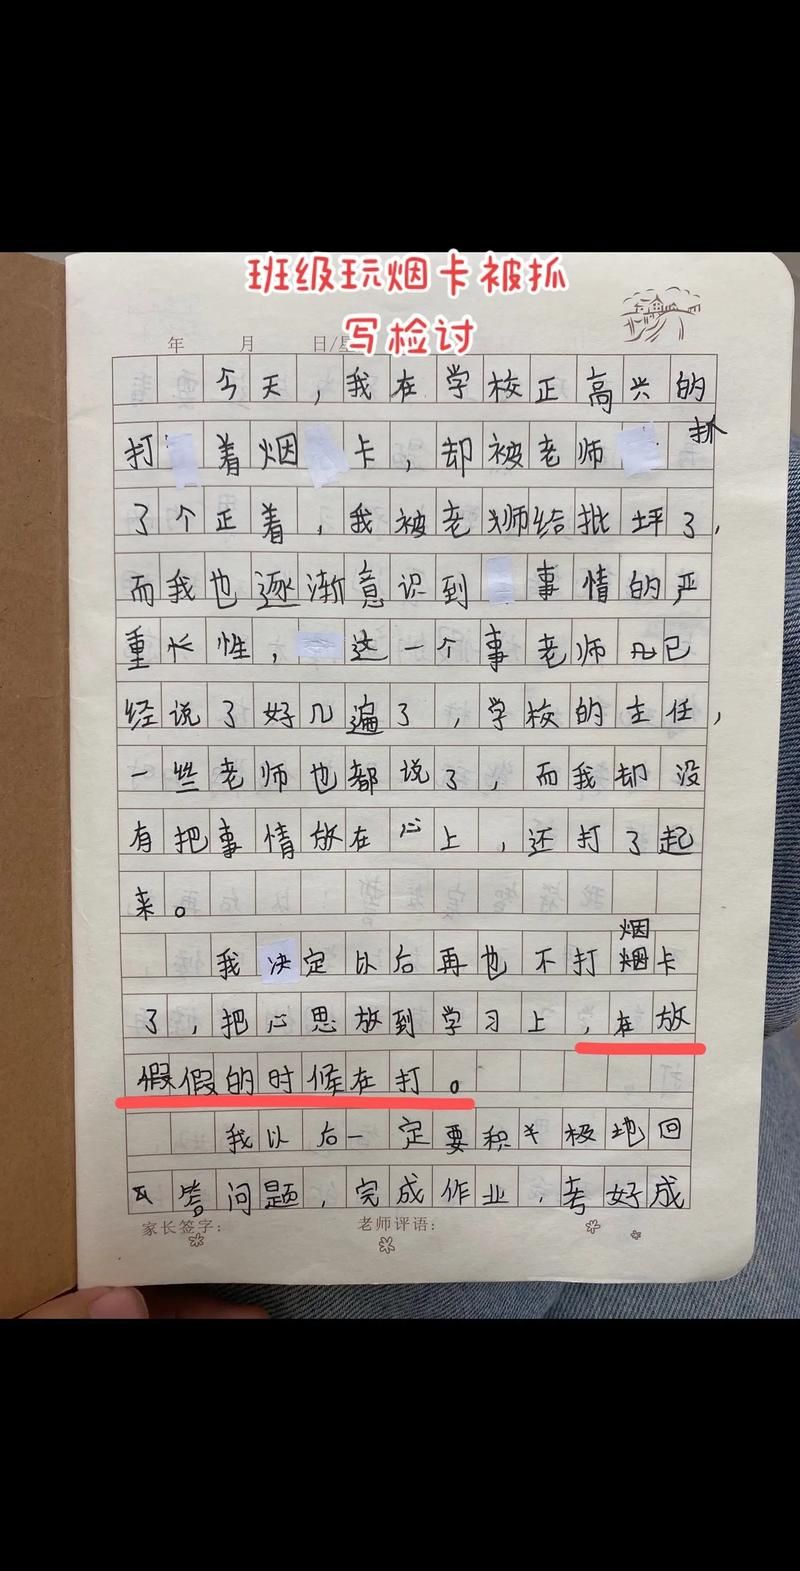 班级玩烟卡被抓
写检讨
年 月 日/星
今天，我在学校正高兴的
打着烟卡，却被老师抓
了个正着，我被老师给批坪了，
而我也逐渐意识到事情的严
重长性，这一个事老师已
经说了好几遍了，学校的主任，
一些老师也都说了，而我却没
有把事情放在心上，还打了起
来。
烟
我决定以后再也不打烟卡
了，把心思放到学习上，在放
假假的时候在打。
我以后一定要积极地回
答问题，完成作业，考好成
家长签字： 老师评语：